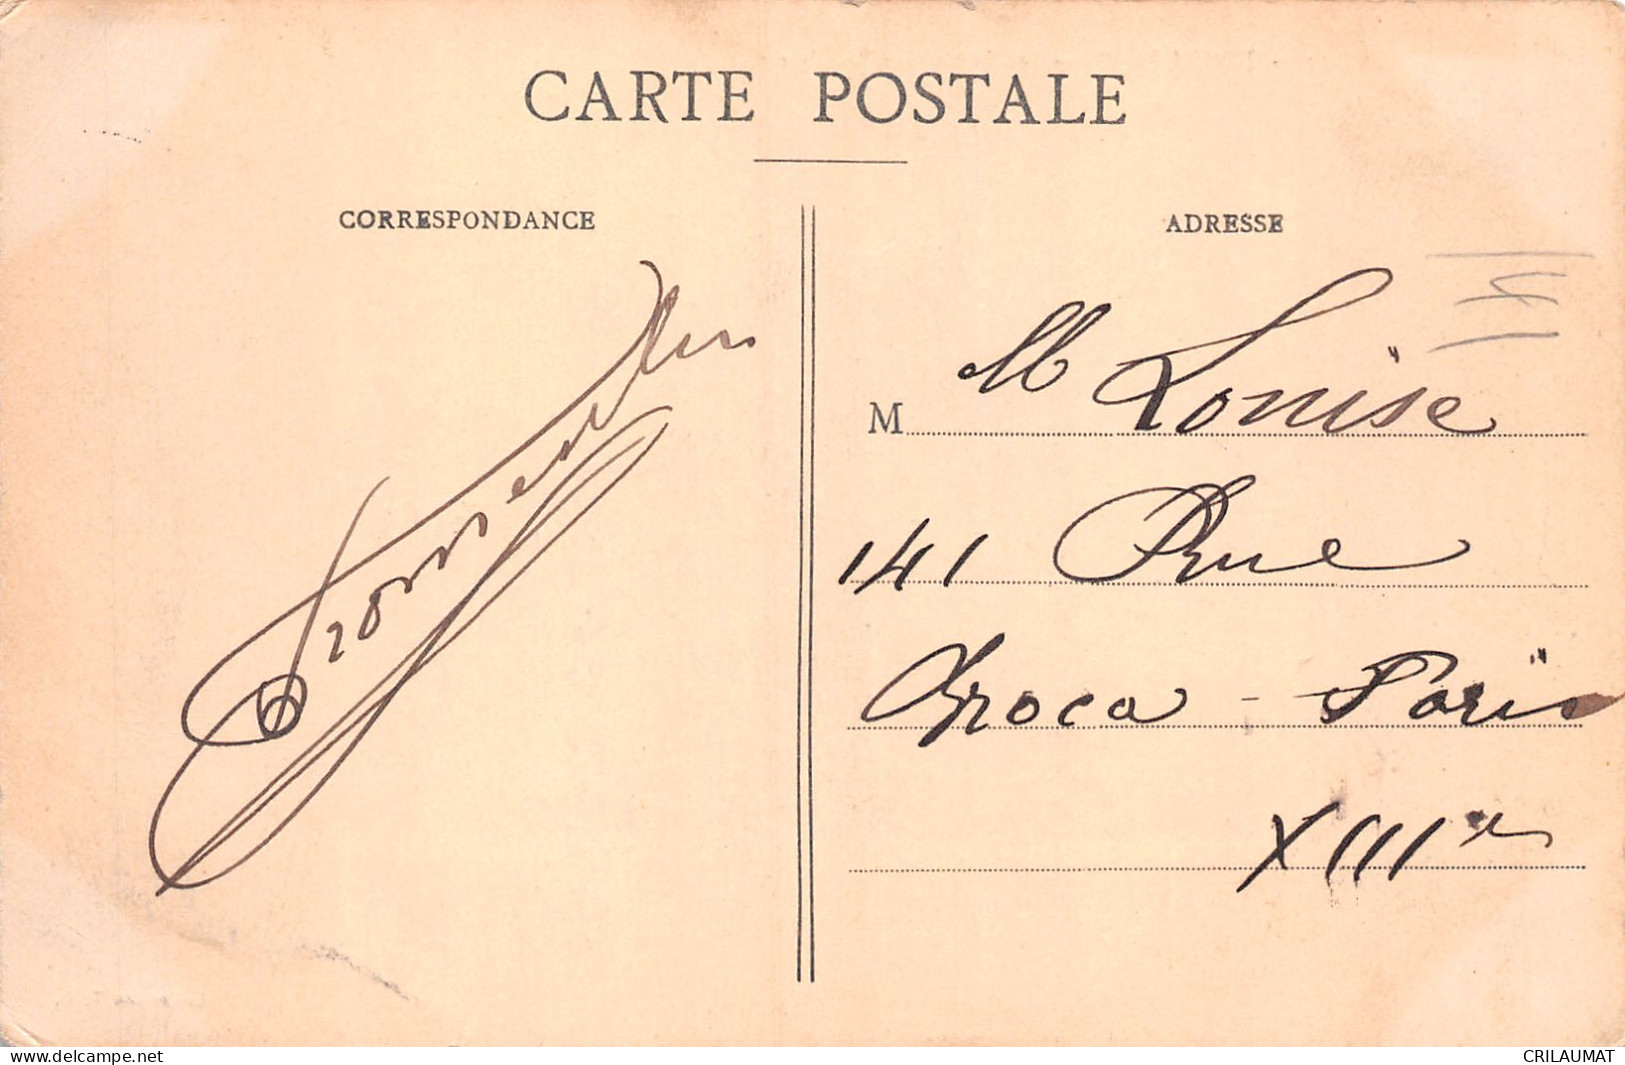 CARTE POSTALE
CORRESPONDANCE
ADRESSE
M
Mlle Louise
141 Rue
Broca - Paris
XIIIe
www.delcampe.net
CRILAUMAT